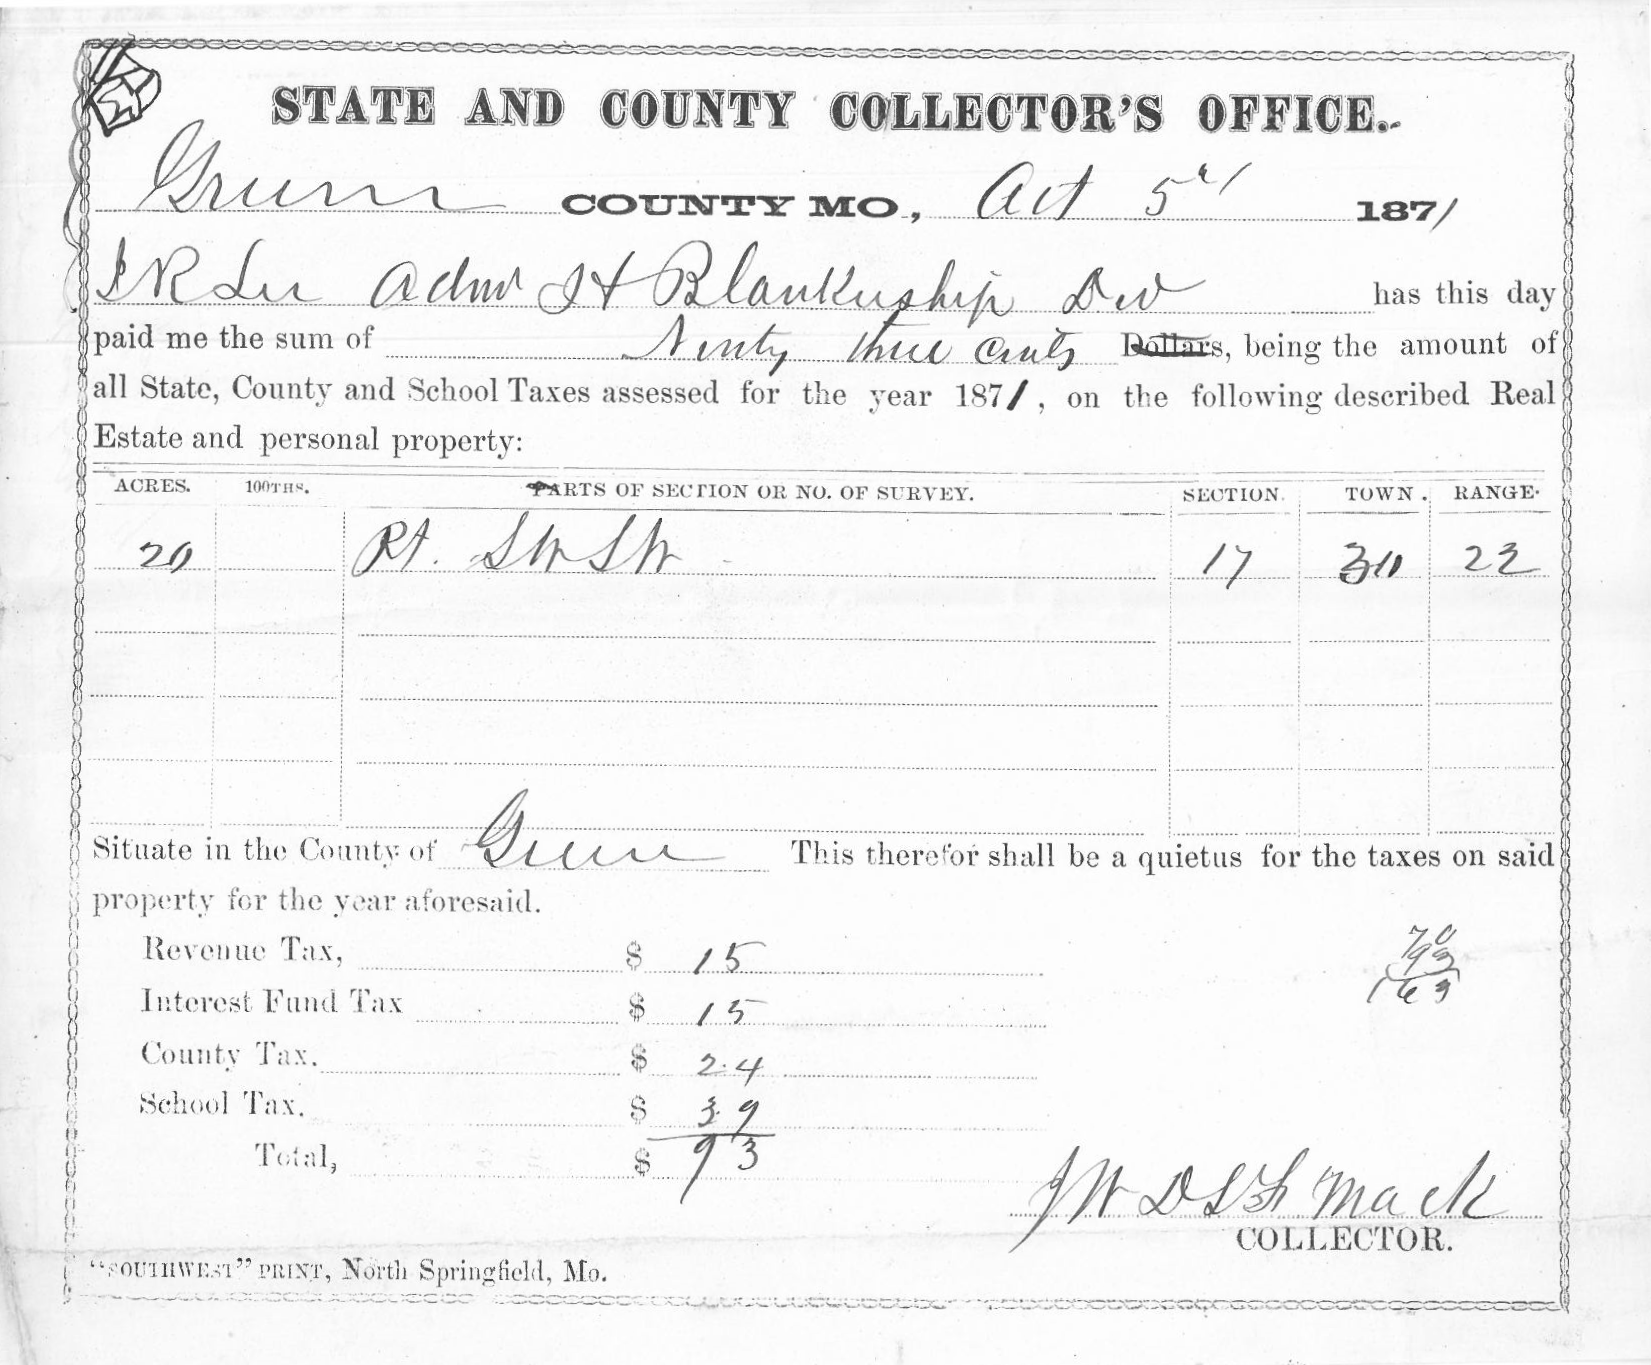 STATE AND COUNTY COLLECTOR'S OFFICE.
Green COUNTY MO., Oct 5th 1871
J R Lee Admr J H Blankenship Decd has this day
paid me the sum of Ninty three cents Dollars, being the amount of
all State, County and School Taxes assessed for the year 1871, on the following described Real
Estate and personal property:
ACRES. 100THS. PARTS OF SECTION OR NO. OF SURVEY. SECTION. TOWN. RANGE.
20 Pt. SW SW 17 30 22
Situate in the County of Green This therefor shall be a quietus for the taxes on said
property for the year aforesaid.
Revenue Tax, $ 15
Interest Fund Tax $ 15
County Tax. $ 24
School Tax. $ 39
Total, $ 93
70
93
163
Mack
COLLECTOR.
"SOUTHWEST" PRINT, North Springfield, Mo.